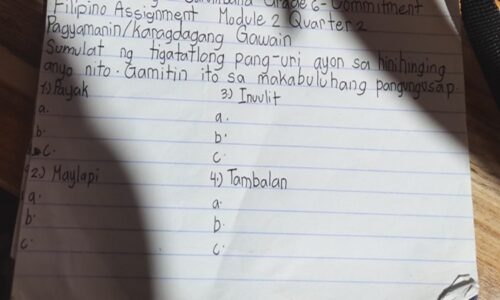 Grade 6- Commitment
Filipino Assignment Module 2 Quarter 2
Pagyamanin/karagdagang Gawain
Sumulat ng tigatatlong pang-uri ayon sa hinihinging
anyo nito. Gamitin ito sa makabuluhang pangungusap.
1.) Payak
a.
b.
c.
2.) Maylapi
a.
b.
c.
3.) Inuulit
a.
b.
c.
4.) Tambalan
a.
b.
c.